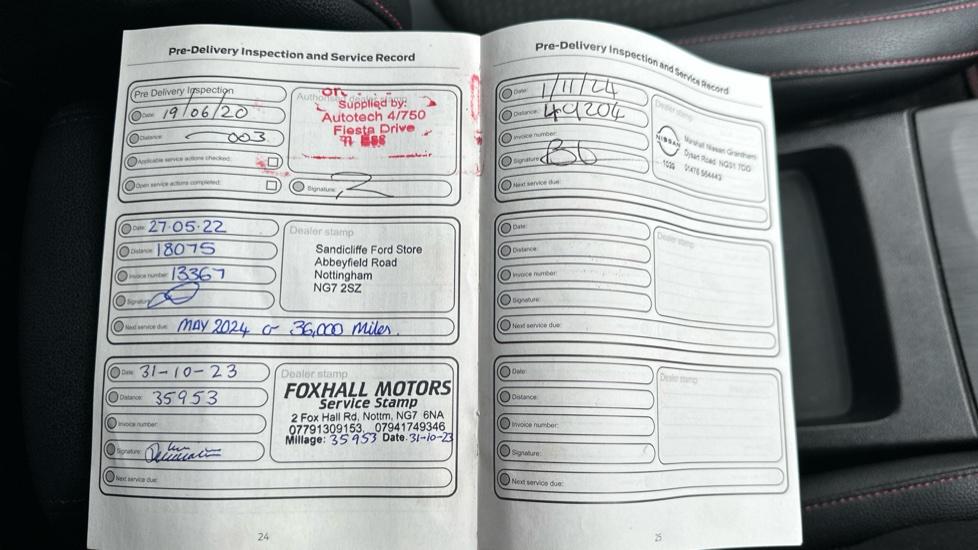 Pre-Delivery Inspection and Service Record
Pre Delivery Inspection
Date: 19/06/20
Distance: 003
Applicable service actions checked:
Open service actions completed:
Authorised dealer stamp
Supplied by:
Autotech 4/750
Fiesta Drive
Signature:
Date: 27.05.22
Distance: 18075
Invoice number: 13367
Signature:
Next service due: MAY 2024 or 36,000 Miles.
Dealer stamp
Sandicliffe Ford Store
Abbeyfield Road
Nottingham
NG7 2SZ
Date: 31-10-23
Distance: 35953
Invoice number:
Signature:
Next service due:
Dealer stamp
FOXHALL MOTORS
Service Stamp
2 Fox Hall Rd, Nottm, NG7 6NA
07791309153 07941749346
Millage: 35953 Date 31-10-23
24
Pre-Delivery Inspection and Service Record
Date: 1/11/24
Distance: 49204
Invoice number:
Signature:
Next service due:
Dealer stamp
NISSAN
Marshall Nissan Grantham
Dysart Road NG31 7DD
Date:
Distance:
Invoice number:
Signature:
Next service due:
Dealer stamp
Date:
Distance:
Invoice number:
Signature:
Next service due:
Dealer stamp
25